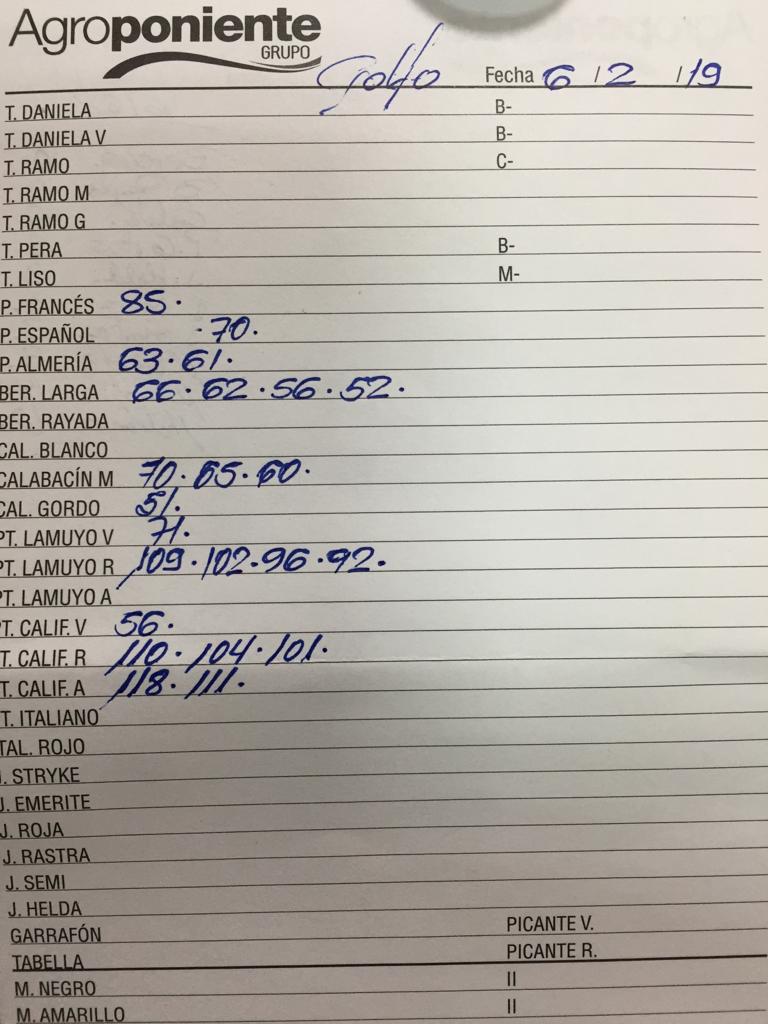 Agroponiente
GRUPO
Golfo Fecha 6 / 2 / 19
T. DANIELA B-
T. DANIELA V B-
T. RAMO C-
T. RAMO M
T. RAMO G
T. PERA B-
T. LISO M-
P. FRANCÉS 85.
P. ESPAÑOL ·70.
P. ALMERÍA 63·61.
BER. LARGA 66·62·56·52.
BER. RAYADA
CAL. BLANCO
CALABACÍN M 70·65·60.
CAL. GORDO 51.
PT. LAMUYO V 71.
PT. LAMUYO R 109·102·96·92.
PT. LAMUYO A
PT. CALIF. V 56.
T. CALIF. R 110·104·101.
T. CALIF. A 118·111.
T. ITALIANO
TAL. ROJO
J. STRYKE
J. EMERITE
J. ROJA
J. RASTRA
J. SEMI
J. HELDA
GARRAFÓN PICANTE V.
TABELLA PICANTE R.
M. NEGRO II
M. AMARILLO II